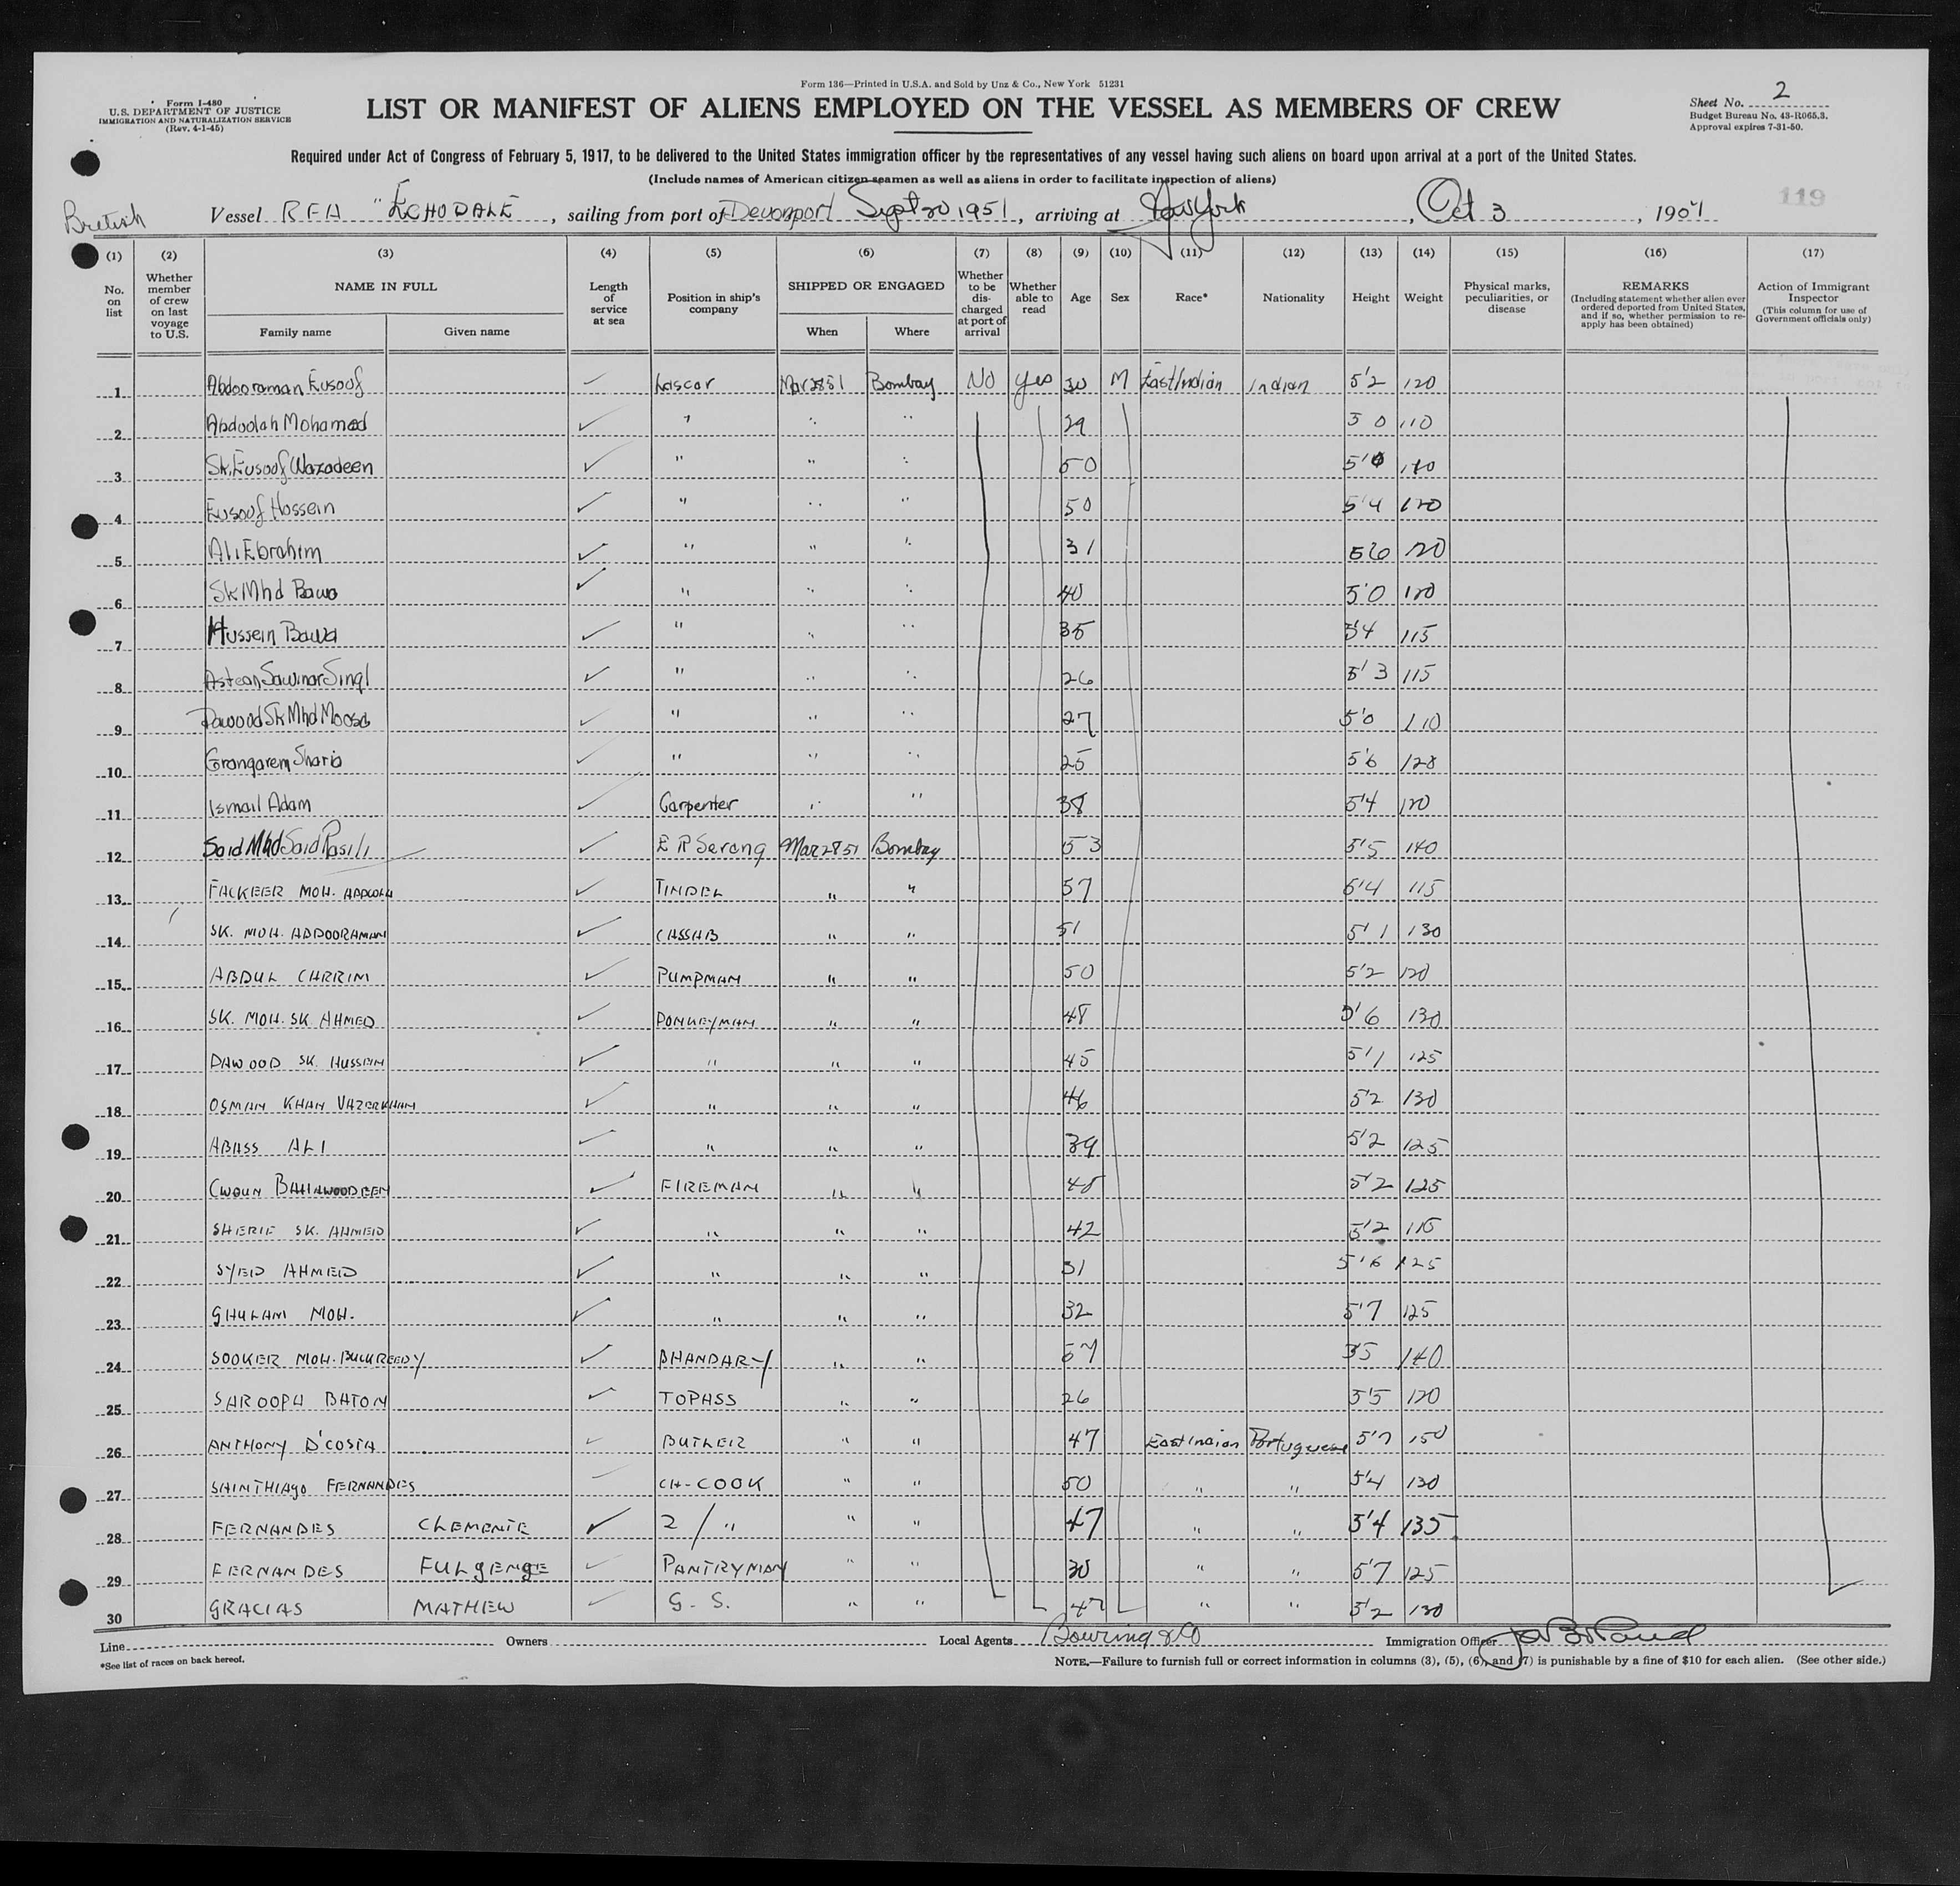 Form 136—Printed in U.S.A. and Sold by Unz & Co., New York 51231
Form I-480
U.S. DEPARTMENT OF JUSTICE
IMMIGRATION AND NATURALIZATION SERVICE
(Rev. 4-1-45)
LIST OR MANIFEST OF ALIENS EMPLOYED ON THE VESSEL AS MEMBERS OF CREW
Sheet No. 2
Budget Bureau No. 43-R065.3.
Approval expires 7-31-50.
Required under Act of Congress of February 5, 1917, to be delivered to the United States immigration officer by the representatives of any vessel having such aliens on board upon arrival at a port of the United States.
(Include names of American citizen seamen as well as aliens in order to facilitate inspection of aliens)
119
British Vessel RFA "ECHODALE, sailing from port of Devonport Sept 20 1951, arriving at New York, Oct 3, 1951
(1) (2) (3) (4) (5) (6) (7) (8) (9) (10) (11) (12) (13) (14) (15) (16) (17)
No. on list
Whether member of crew on last voyage to U.S.
NAME IN FULL
Family name Given name
Length of service at sea
Position in ship's company
SHIPPED OR ENGAGED
When Where
Whether to be discharged at port of arrival
Whether able to read
Age
Sex
Race*
Nationality
Height
Weight
Physical marks, peculiarities, or disease
REMARKS
(Including statement whether alien ever ordered deported from United States, and if so, whether permission to reapply has been obtained)
Action of Immigrant Inspector
(This column for use of Government officials only)
1 Abdooraman Eusoof Lascar Mar 28 51 Bombay No yes 30 M East Indian Indian 5'2 120
2 Abdoolah Mohamed " " " 29 5 0 110
3 Sk. Eusoof Wazadeen " " " 50 5'
4 Eusoof Hossein " " " 50 5'4 120
5 Ali Ebrahim " " " 31 5 6 120
6 Sk Mhd Bawa " " " 40 5'0 120
7 Hussein Bawa " " " 35 5'4 115
8 Sawinar Singl " " " 26 5'3 115
9 Dawood Sk Mhd Moosa " " " 27 5'0 110
10 Grangarem Sharia " " " 25 5'6 128
11 Ismail Adam Carpenter " " 38 5'4 120
12 Said Mhd Said Rasili E R Serang Mar 28 51 Bombay 53 5'5 140
13 FACKEER MOH. ABDOOLA TINDEL " " 57 5'4 115
14 SK. MOH. ABDOORAMAN CASSAB " " 51 5'1 130
15 ABDUL CARRIM PUMPMAN " " 50 5'2 120
16 SK. MOH. SK. AHMED DONKEYMAN " " 48 5'6 130
17 DAWOOD SK. HUSSEIN " " " 45 5'1 125
18 OSMAN KHAN VAZERKHAN " " " 46 5'2 130
19 ABASS ALI " " " 39 5'2 125
20 FIREMAN " " 45 5'2 125
21 SHERIF SK. AHMED " " " 42 5'2 115
22 SYED AHMED " " " 31 5'6 125
23 GHULAM MOH. " " " 32 5'7 125
24 SOOKER MOH. BUCKREEDY BHANDARY " " 57 5'5 140
25 SAROOPA BATON TOPASS " " 26 5'5 120
26 ANTHONY D'COSTA BUTLER " " 47 East Indian Portuguese 5'7 150
27 SAINTHIAGO FERNANDES CH-COOK " " 50 " " 5'4 130
28 FERNANDES CLEMENTE 2/ " " " 47 " " 5'4 135
29 FERNANDES FULGENGE PANTRYMAN " " 30 " " 5'7 125
30 GRACIAS MATHEW G.S. " " 47 " " 5'2 130
Line Owners Local Agents Bowring & Co Immigration Officer
*See list of races on back hereof.
NOTE.—Failure to furnish full or correct information in columns (3), (5), (6), and (7) is punishable by a fine of $10 for each alien. (See other side.)